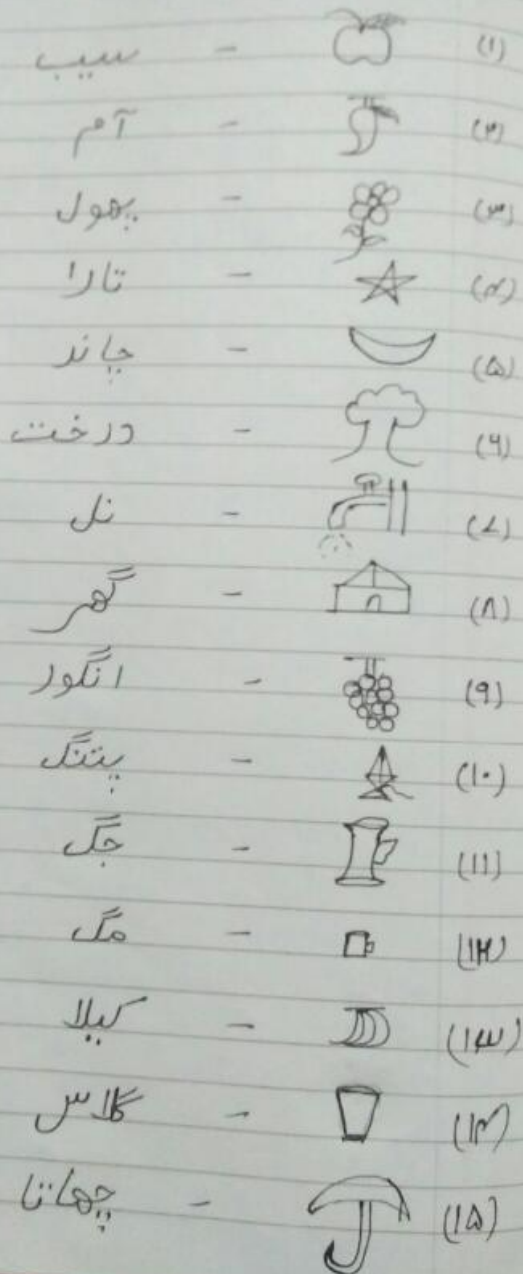 (۱) - سیب
(۲) - آم
(۳) - پھول
(۴) - تارا
(۵) - چاند
(۶) - درخت
(۷) - نل
(۸) - گھر
(۹) - انگور
(۱۰) - پتنگ
(۱۱) - جگ
(۱۲) - مگ
(۱۳) - کیلا
(۱۴) - گلاس
(۱۵) - چھاتا